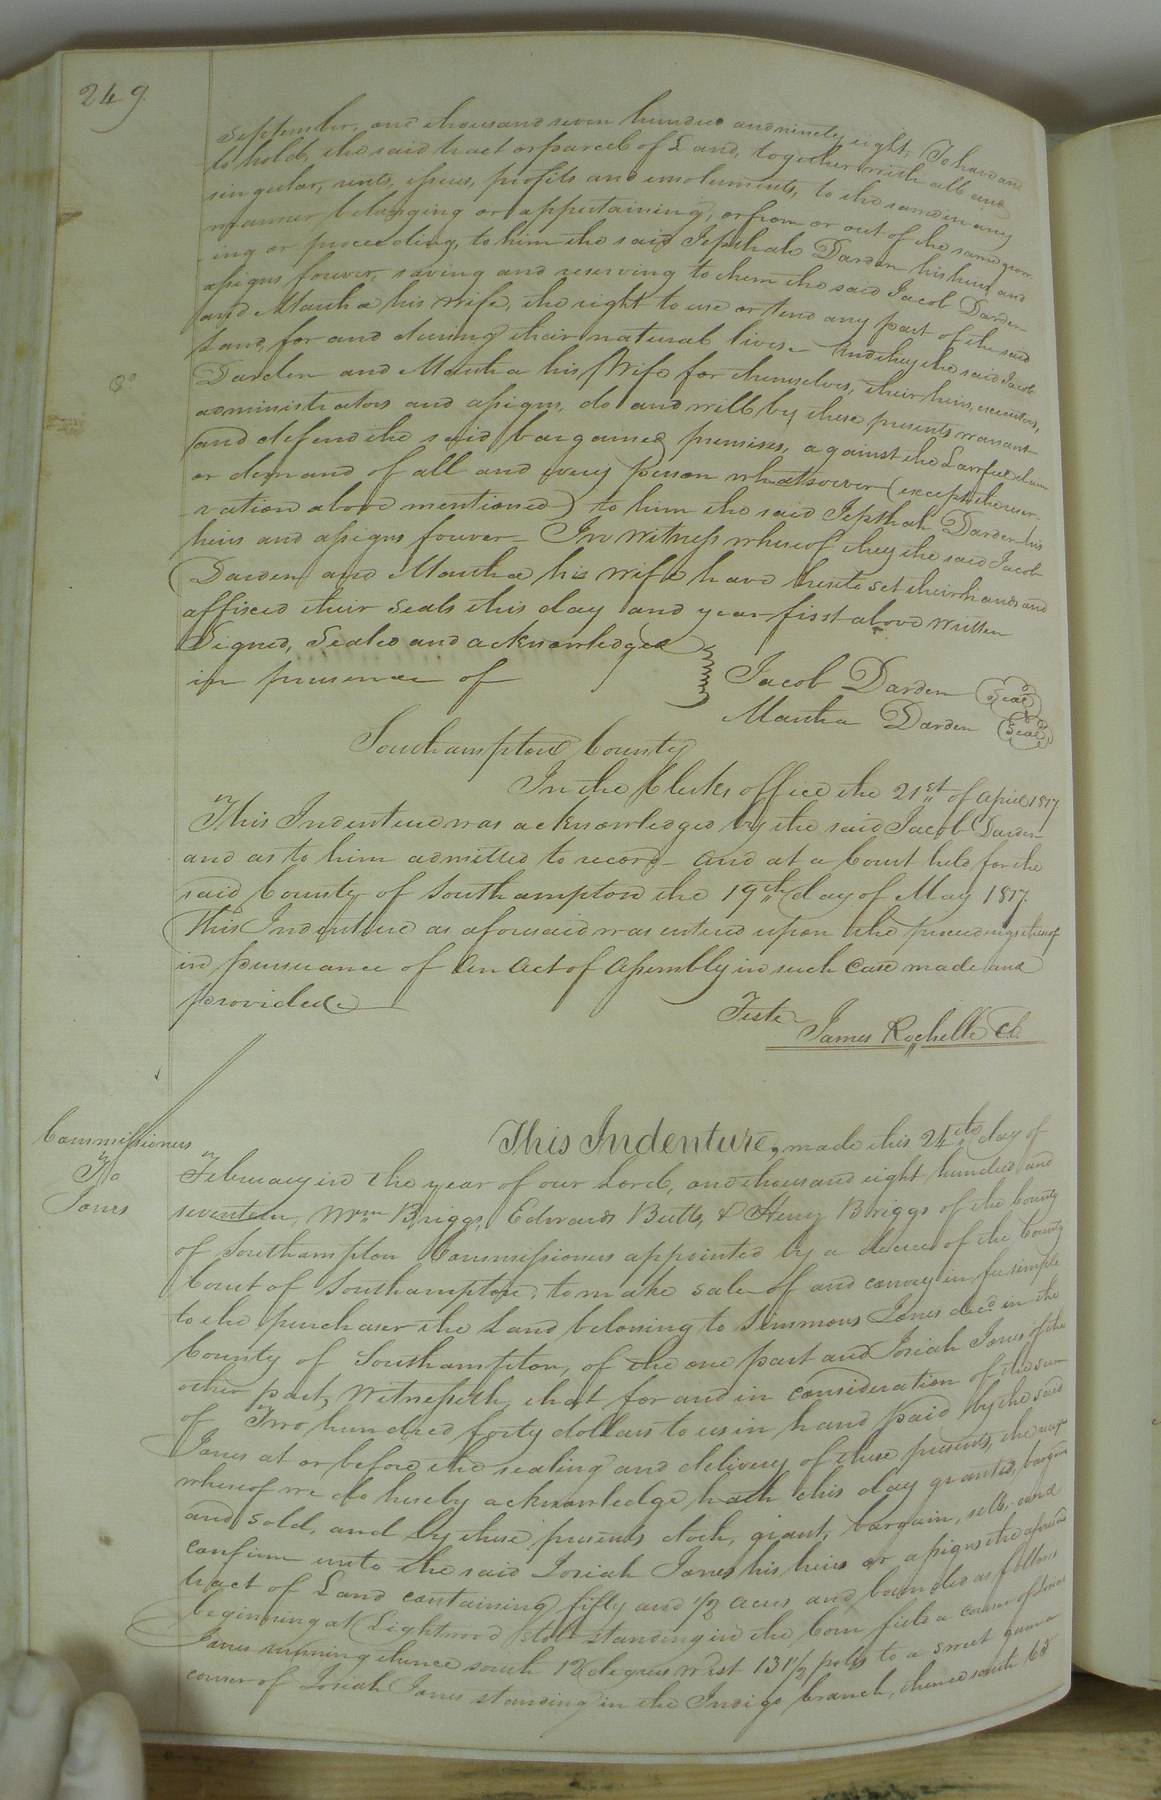 249.
September, one thousand seven hundred and ninety eight, To have and
to hold, the said tract or parcel of Land, together with all and
singular, rents, issues, profits and emoluments, to the same in any
manner belonging or appertaining, or from or out of the same grow-
ing or proceeding, to him the said Jepthah Darden his heirs and
assigns forever, saving and reserving to them the said Jacob Darden
and Martha his wife, the right to use or tend any part of the said
Land, for and during their natural lives - And they the said Jacob
Darden and Martha his Wife for themselves, their heirs, executors,
administrators and assigns, do and will by these presents warrant
and defend the said bargained premises, against the Lawful claim
or demand of all and every person whatsoever (except the reser-
vation above mentioned) to him the said Jepthah Darden his
heirs and assigns forever - In Witness whereof they the said Jacob
Darden and Martha his wife have hereto set their hands and
affixed their seals this day and year first above written
Signed, Sealed and acknowledged
in presence of
Jacob Darden (Seal)
Martha Darden (Seal)
Southampton County
In the Clerks office the 21st of April 1817
This Indenture was acknowledged by the said Jacob Darden
and as to him admitted to record - and at a Court held for the
said County of Southampton the 19th day of May 1817.
This Indenture as aforesaid was entered upon the proceedings thereof
in pursuance of An Act of Assembly in such Case made and
provided
Teste
James Rochelle Cl.
Commissioners
To
Jones
This Indenture, made this 24th day of
February in the year of our Lord, one thousand eight hundred and
seventeen, Wm Briggs, Edwards Butts, & Henry Briggs of the County
of Southampton Commissioners appointed by a decree of the County
Court of Southampton, to make sale of and convey in fee simple
to the purchaser the Land belonging to Simmons Jones decd in the
County of Southampton, of the one part and Josiah Jones of the
other part, Witnesseth, that for and in consideration of the sum
of Two hundred forty dollars to us in hand paid by the said
Jones at or before the sealing and delivery of these presents, the receipt
whereof we do hereby acknowledge hath this day granted, bargain
and sold, and by these presents doth, grant, bargain, sell, and
confirm unto the said Josiah Jones his heirs or assigns the aforesaid
tract of Land containing fifty and 1/2 acres and bounded as follows
beginning at Lightwood standing in the Corn field a corner of
Jones running thence south 12 degrees West 131 1/2 poles to a sweet gum a
corner of Josiah Jones standing in the Indigo branch, thence south 63